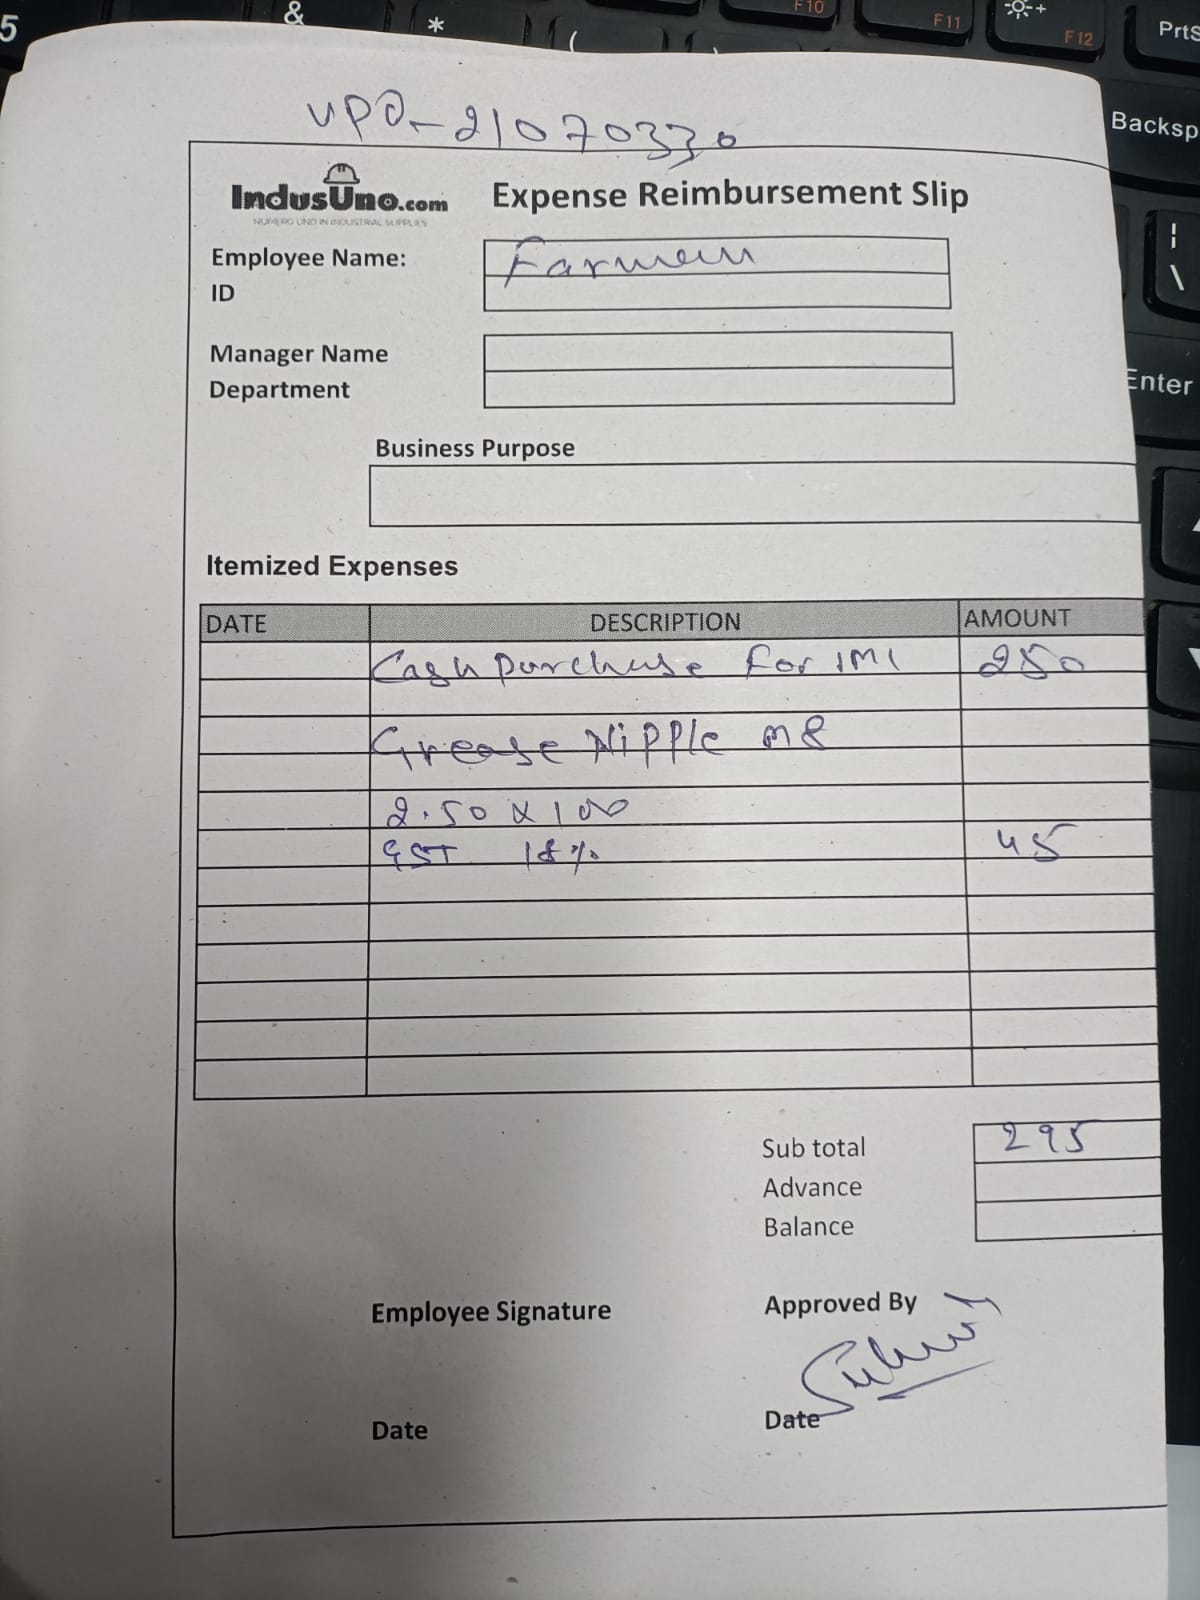 5 & * ( ) F10 F11 F12 PrtS
Backsp
Enter
VPO-21070330
IndusUno.com Expense Reimbursement Slip
NUMERO UNO IN INDUSTRIAL SUPPLIES
Employee Name:
ID
Manager Name
Department
Business Purpose
Itemized Expenses
DATE DESCRIPTION AMOUNT
Cash purchase For IMI 250
Grease Nipple M8
2.50 x 100
GST 18% 45
Sub total 295
Advance
Balance
Employee Signature Approved By
Date Date